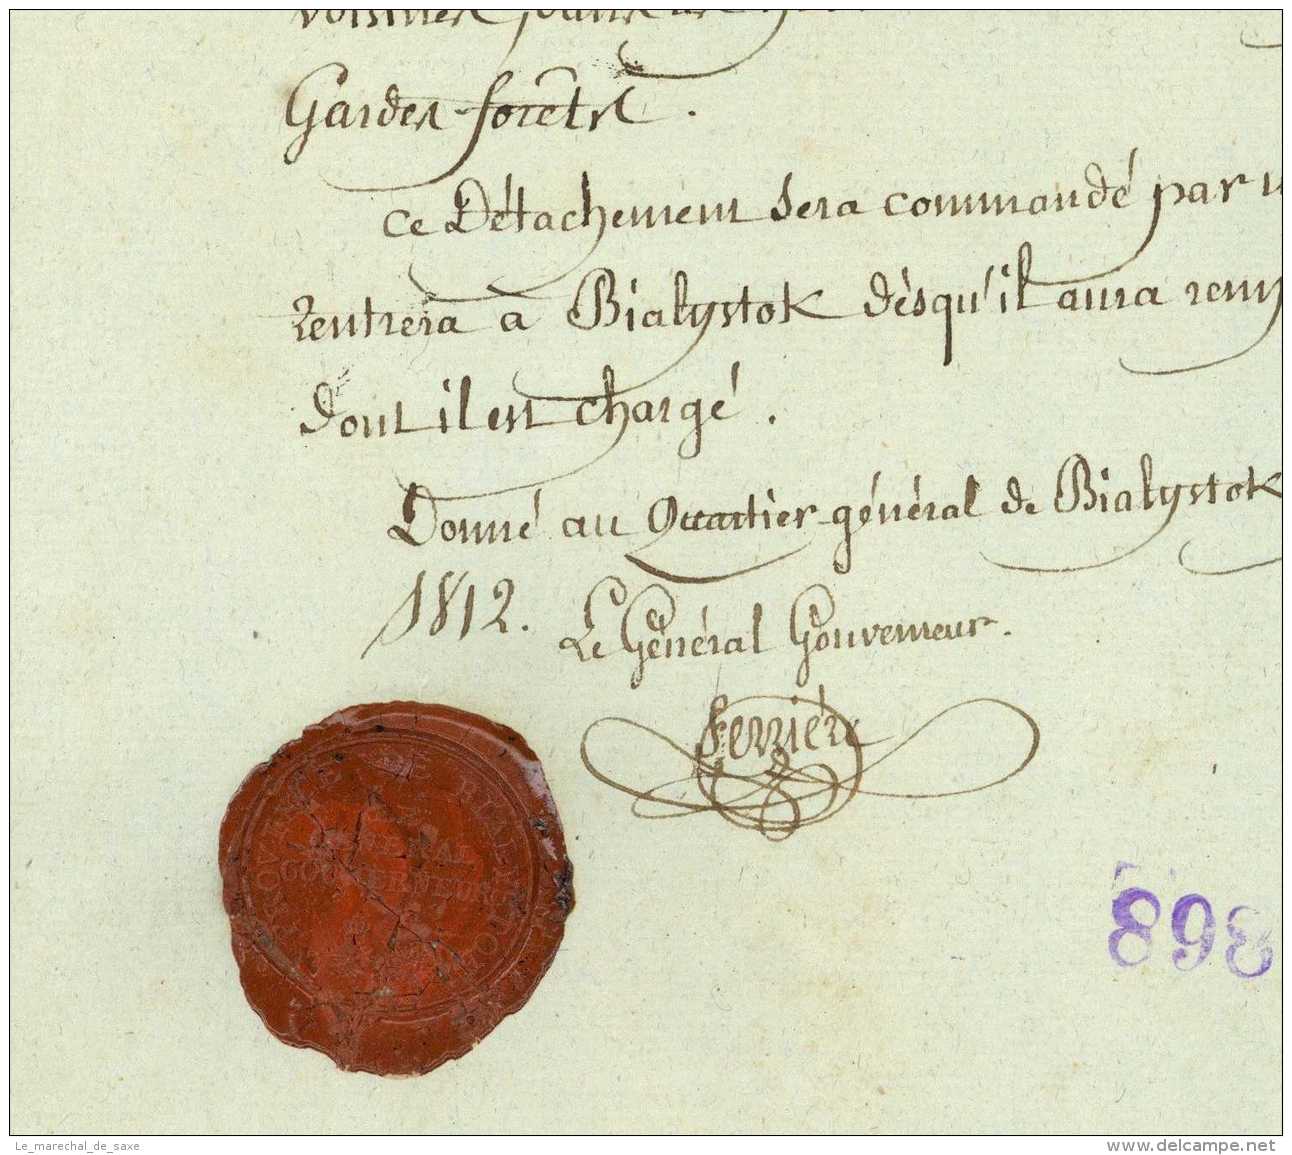 voisines
Gardes-forêts.
Ce Détachement sera commandé par
rentrera à Bialystok dèsqu'il aura
dont il est chargé.
Donné au Quartier-général de Bialystok
1812.
Le Général Gouverneur.
Ferrière
PROVINCE DE BIALYSTOK
GENERAL
GOUVERNEUR
898
Le_marechal_de_saxe
www.delcampe.net